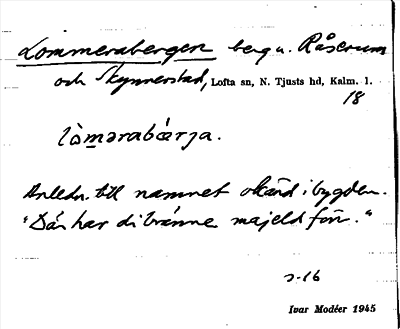 Lommerabergen berg u. Råserum
och Skynnerstad, Lofta sn, N. Tjusts hd, Kalm. l.
18
lòmərabærja.
Anledn. till namnet okänd i bygden.
"Där har di bränne majeld förr."
2-16
Ivar Modéer 1945